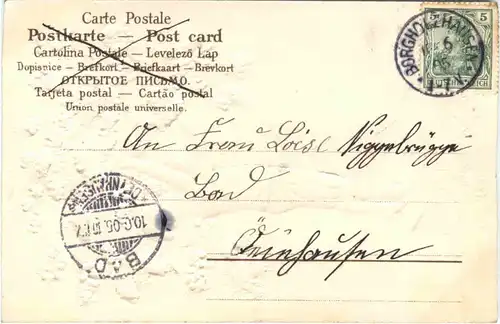 Carte Postale
Postkarte — Post card
Cartolina Postale — Levelező Lap
Dopisnice — Brefkort — Briefkaart — Brevkort
ОТКРЫТОЕ ПИСЬМО.
Tarjeta postal — Cartão postal
Union postale universelle.
BORGHOLZHAUSEN
5
An Frau Loise Niggebrügge
Bad
Oeinhausen
BAD